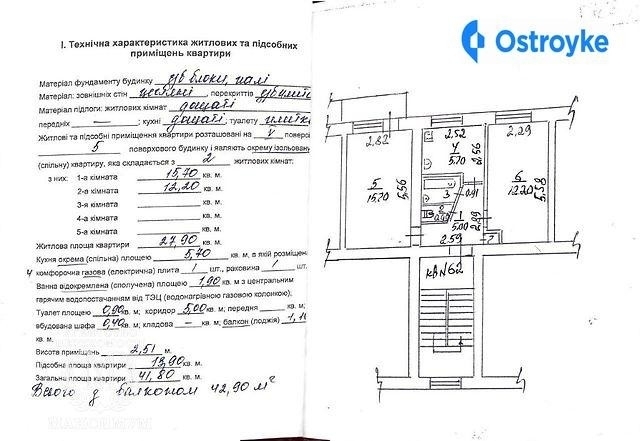 Ostroyke
І. Технічна характеристика житлових та підсобних
приміщень квартири
Матеріал фундаменту будинку з/б блоки, палі
Матеріал: зовнішніх стін перекриттів
Матеріал підлоги: житлових кімнат дощаті
передніх — ; кухні дощаті; туалету плитка
Житлові та підсобні приміщення квартири розташовані на V поверсі
5 поверхового будинку і являють окрему ізольовану
(спільну) квартиру, яка складається з 2 житлових кімнат:
з них: 1-а кімната 15,70 кв. м.
2-а кімната 12,20 кв. м.
3-я кімната кв. м.
4-а кімната кв. м.
5-а кімната кв. м.
Житлова площа квартири 27,90 кв. м.
Кухня окрема (спільна) площею 5,70 кв. м, в якій розміщена
4 комфорочна газова (електрична) плита 1 шт., раковина 1 шт.
Ванна відокремлена (сполучена) площею 1,90 кв. м з центральним
гарячим водопостачанням від ТЭЦ (водонагрівною газовою колонкою).
Туалет площею 0,90 кв. м; коридор 5,00 кв. м; передня кв. м;
вбудована шафа 0,40 кв. м; кладова — кв. м; балкон (лоджія) 1,10
кв. м.
Висота приміщень 2,51 м.
Підсобна площа квартири 13,90 кв. м.
Загальна площа квартири 41,80 кв. м.
Всього з балконом 42,90 м²
2,82
2,52
2,29
4
5,70
2,56
5
15,70
5,56
6
12,20
5,58
3
0,41
2
0,90
1
5,00
2,59
7
кв N62